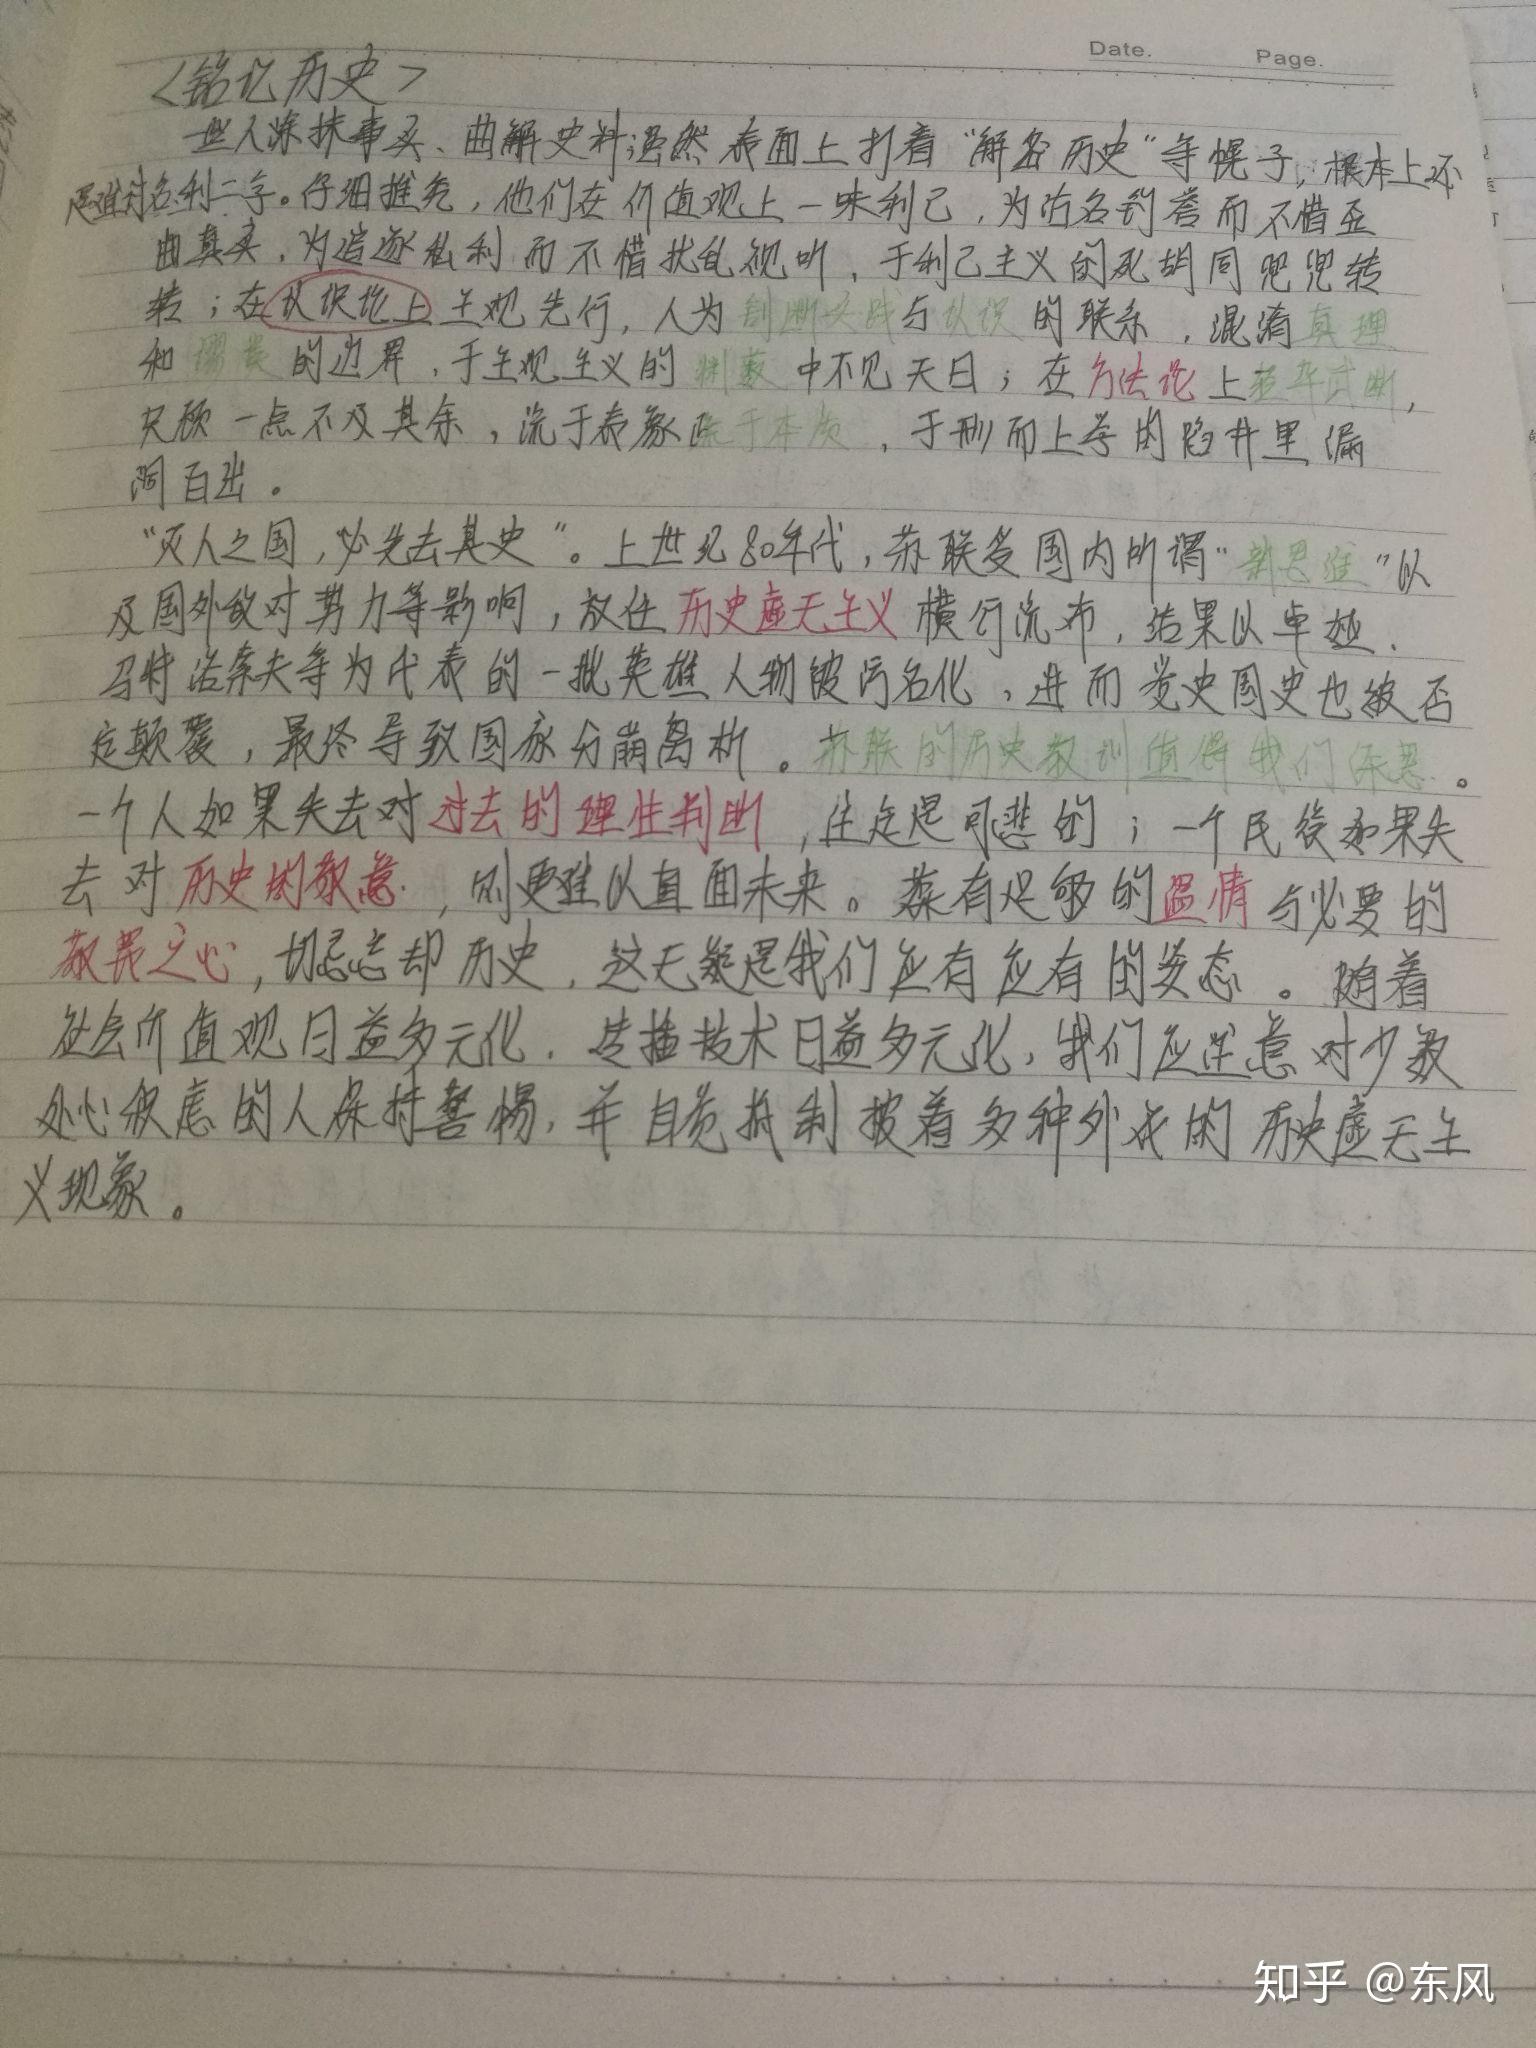 Date.
Page.
<铭记历史>
一些人涂抹事实、曲解史料，虽然表面上打着“解密历史”等幌子，根本上还
是难讨名利二字。仔细推究，他们在价值观上一味利己，为沽名钓誉而不惜歪
曲真实，为追逐私利而不惜扰乱视听，于利己主义的死胡同兜兜转
转；在认识论上主观先行，人为割断实践与认识的联系，混淆真理
和谬误的边界，于主观主义的渊薮中不见天日；在方法论上轻率武断，
只顾一点不及其余，流于表象疏于本质，于形而上学的陷井里漏
洞百出。
“灭人之国，必先去其史”。上世纪80年代，苏联受国内所谓“新思维”以
及国外敌对势力等影响，放任历史虚无主义横行流布，结果以卓娅、
马特洛索夫等为代表的一批英雄人物被污名化，进而党史国史也被否
定颠覆，最终导致国家分崩离析。苏联的历史教训值得我们深思。
一个人如果失去对过去的理性判断，注定是可悲的；一个民族如果失
去对历史的敬意，则更难以直面未来。葆有足够的温情与必要的
敬畏之心，切忌忘却历史，这无疑是我们应有应有的姿态。随着
社会价值观日益多元化，传播技术日益多元化，我们应注意对少数
处心积虑的人保持警惕，并自觉抵制披着多种外衣的历史虚无主
义现象。
知乎 @东风